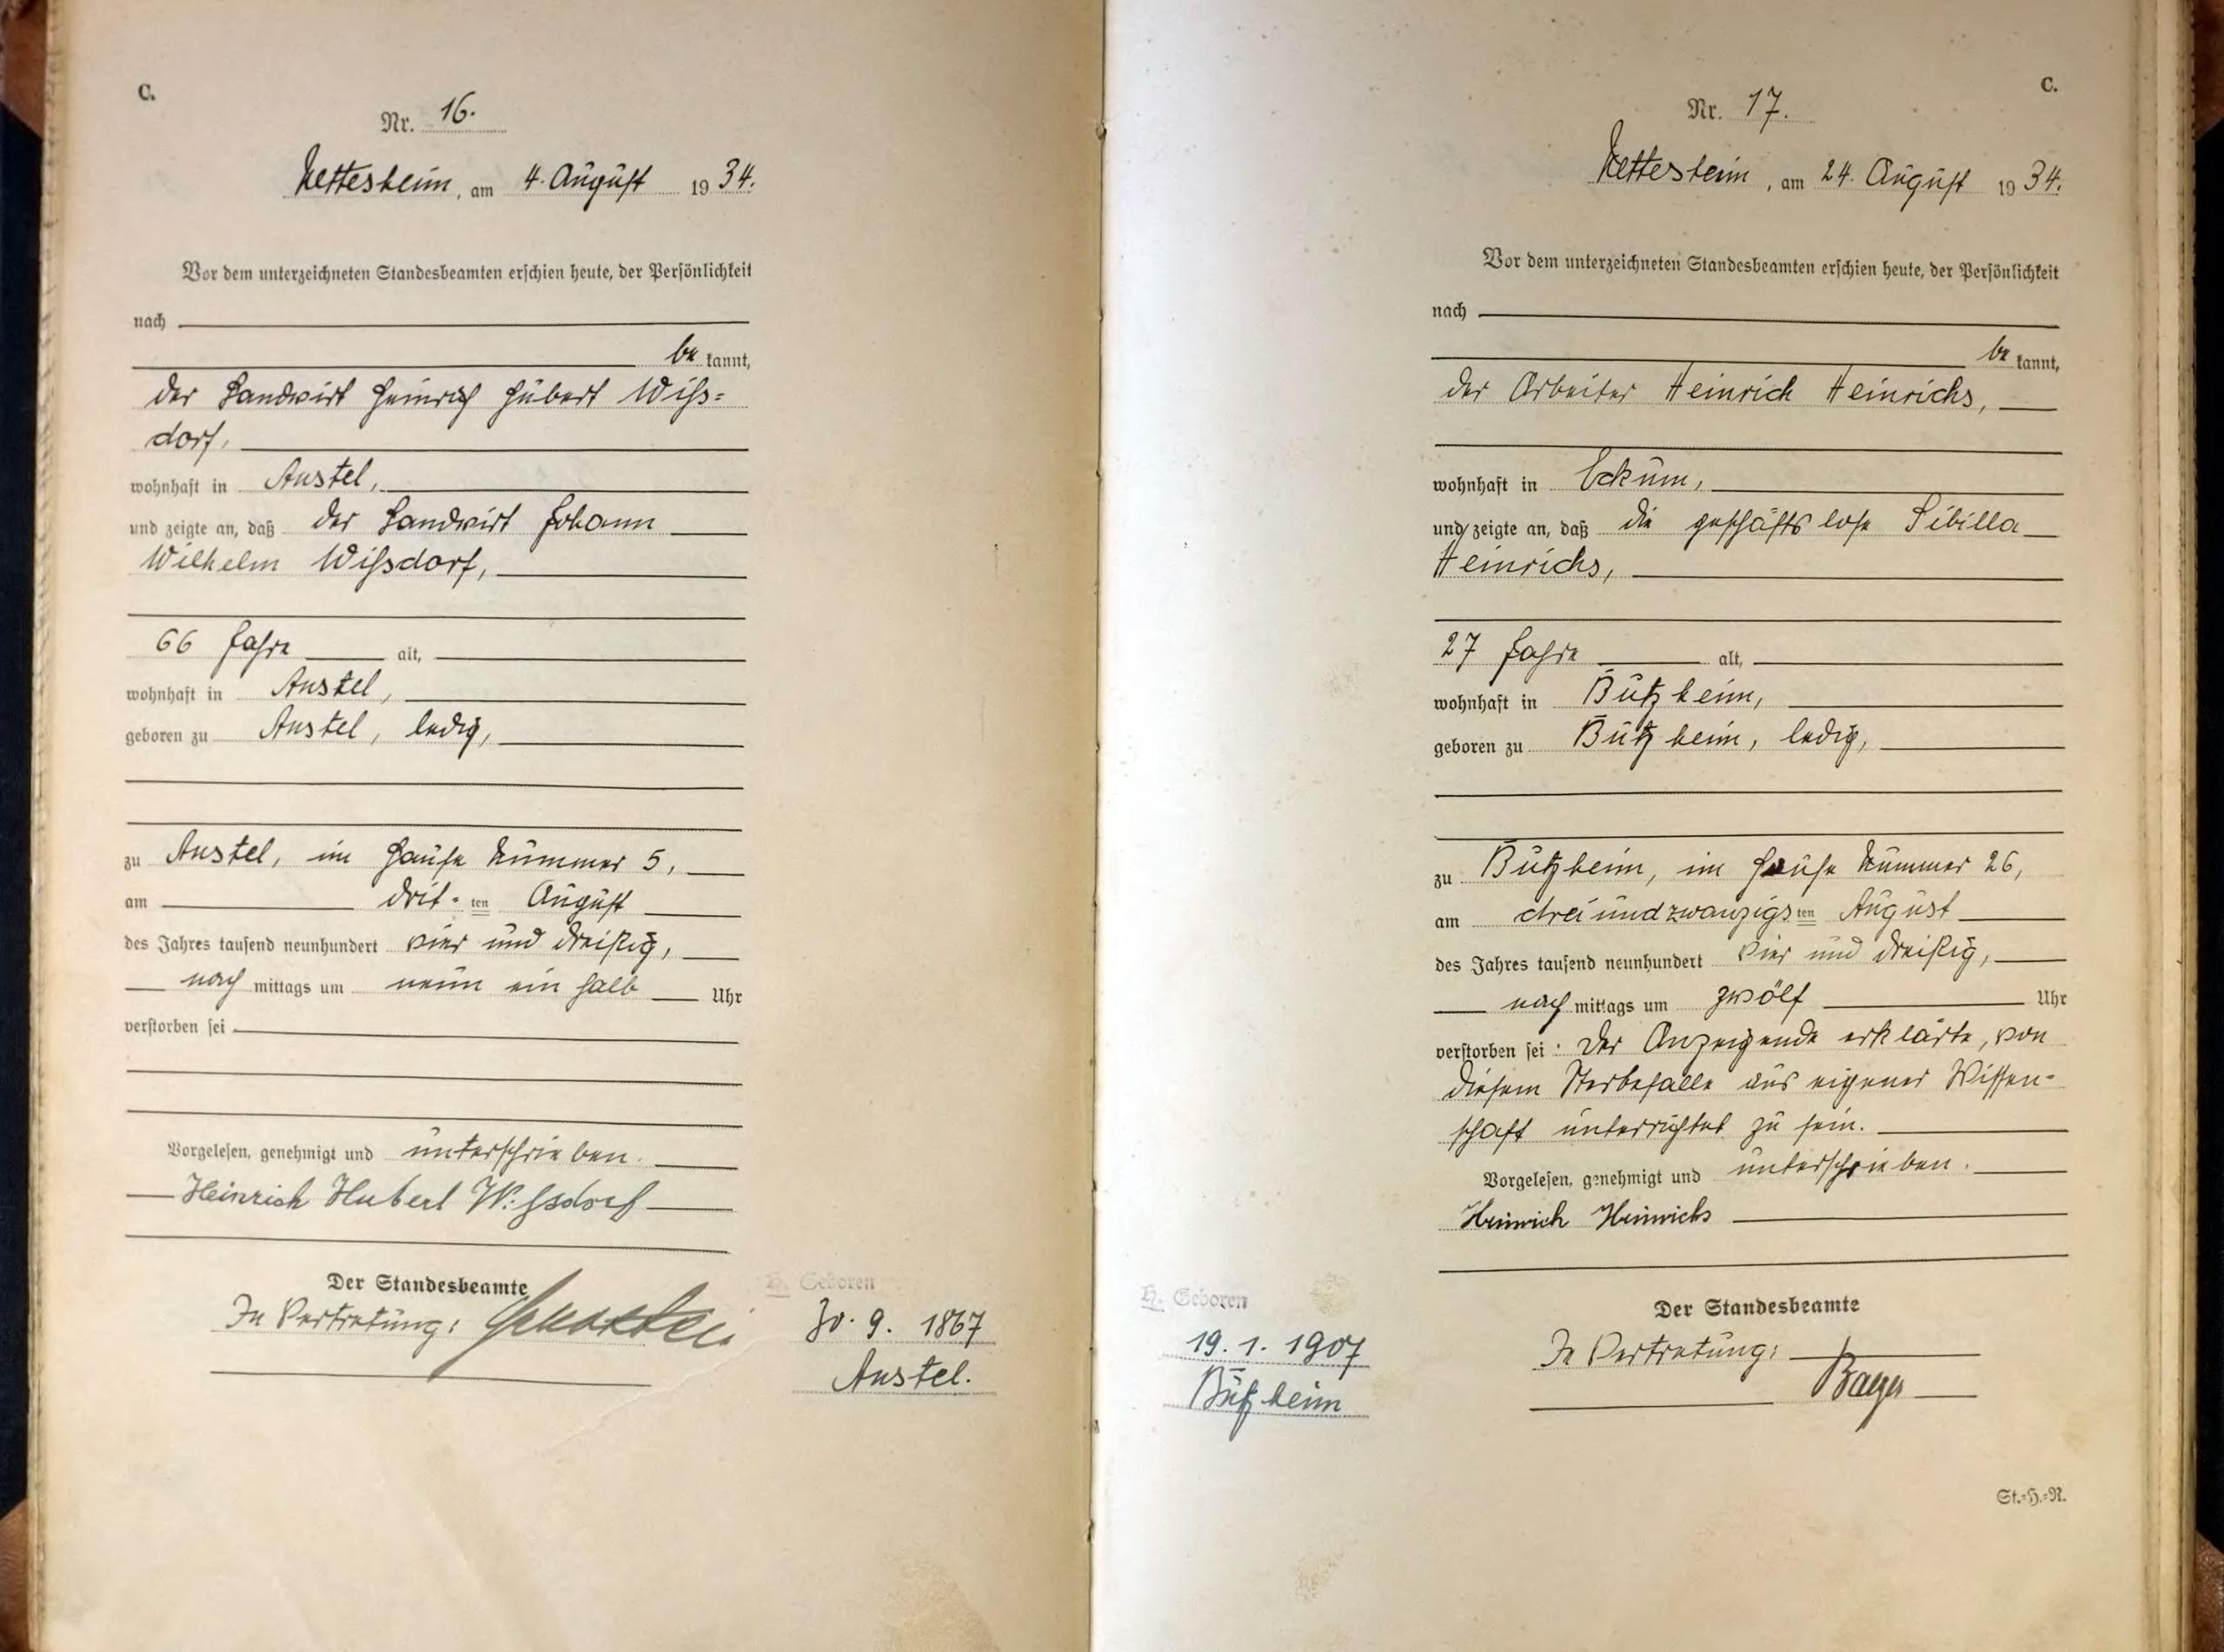 C.
Nr. 16.
Nettesheim, am 4. August 1934.
Vor dem unterzeichneten Standesbeamten erschien heute, der Persönlichkeit
nach
be kannt,
der Landwirt Heinrich Hubert Wißs=
dorf,
wohnhaft in Anstel,
und zeigte an, daß der Landwirt Johann
Wilhelm Wißsdorf,
66 Jahre alt,
wohnhaft in Anstel,
geboren zu Anstel, ledig,
zu Anstel, im Hause Nummer 5,
am drit-ten August
des Jahres tausend neunhundert vier und dreißig,
nach mittags um neun ein halb Uhr
verstorben sei
Vorgelesen, genehmigt und unterschrieben.
Heinrich Hubert Wißsdorf
Der Standesbeamte
In Vertretung:
H. Geboren
30. 9. 1867
Anstel.
C.
Nr. 17.
Nettesheim, am 24. August 1934.
Vor dem unterzeichneten Standesbeamten erschien heute, der Persönlichkeit
nach
be kannt,
der Arbeiter Heinrich Heinrichs,
wohnhaft in Eckum,
und zeigte an, daß die geschäftslose Sibilla
Heinrichs,
27 Jahre alt,
wohnhaft in Bützheim,
geboren zu Bützheim, ledig,
zu Bützheim, im Hause Nummer 26,
am dreiundzwanzigsten August
des Jahres tausend neunhundert vier und dreißig,
nach mittags um zwölf Uhr
verstorben sei. Der Anzeigende erklärte, von
diesem Sterbefalle aus eigener Wissen-
schaft unterrichtet zu sein.
Vorgelesen, genehmigt und unterschrieben.
Heinrich Heinrichs
Der Standesbeamte
In Vertretung:
Bayer
H. Geboren
19. 1. 1907
Bützheim
St.=H.=R.